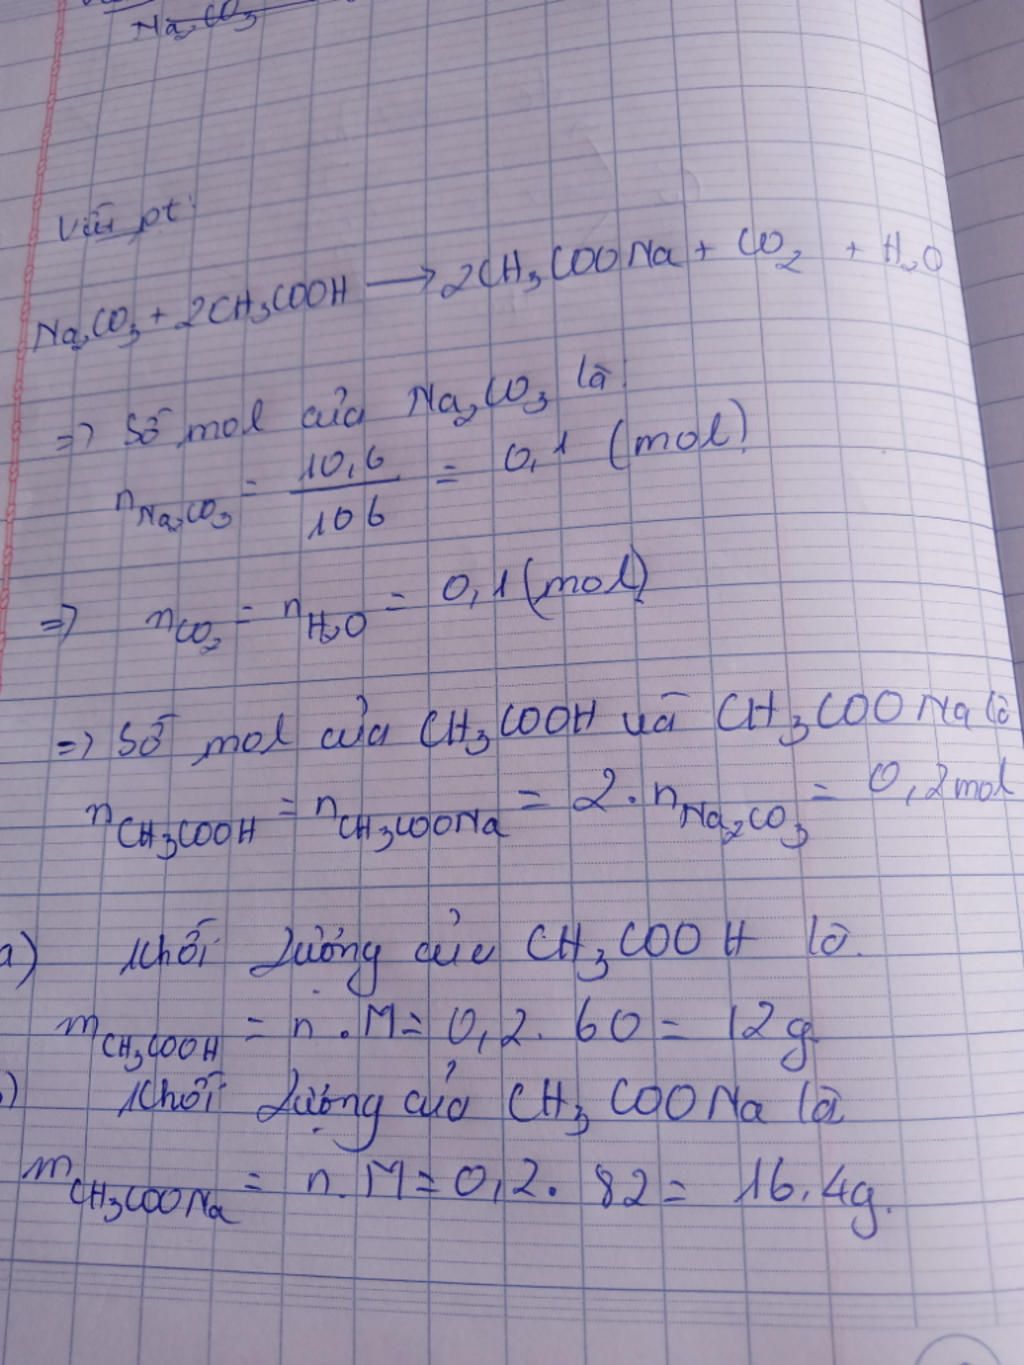 Na₂CO₃
Viết pt:
Na₂CO₃ + 2CH₃COOH → 2CH₃COONa + CO₂ + H₂O
=> Số mol của Na₂CO₃ là:
n Na₂CO₃ = 10,6 / 106 = 0,1 (mol)
=> n CO₂ = n H₂O = 0,1 (mol)
=> Số mol của CH₃COOH và CH₃COONa là
n CH₃COOH = n CH₃COONa = 2 . n Na₂CO₃ = 0,2 mol
a) Khối lượng của CH₃COOH là.
m CH₃COOH = n . M = 0,2 . 60 = 12g
) Khối lượng của CH₃COONa là
m CH₃COONa = n . M = 0,2 . 82 = 16,4g.